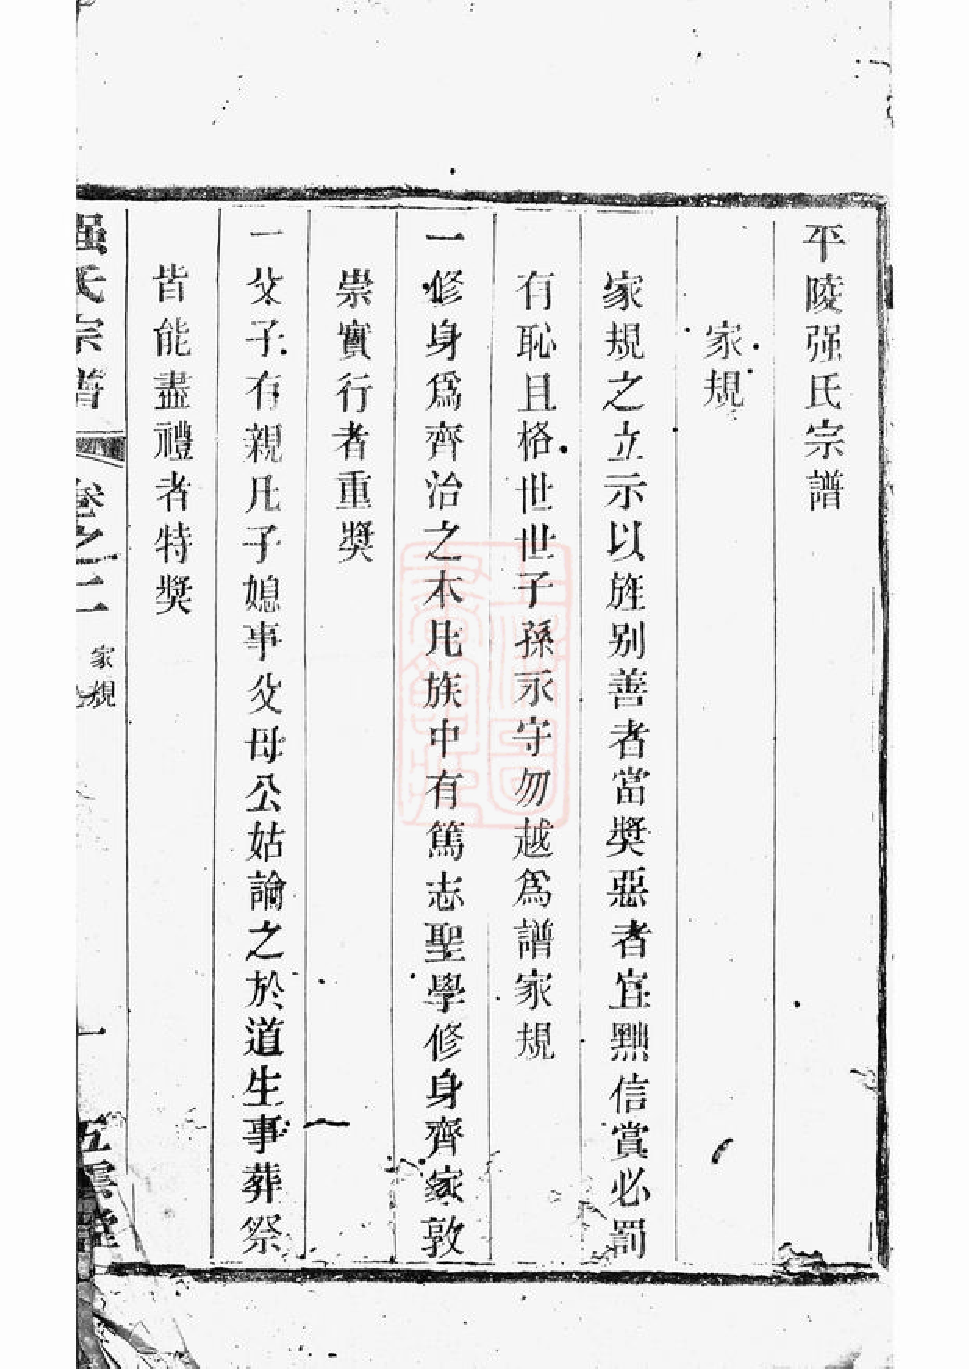 平陵强氏宗譜
家規
家規之立示以旌别善者當獎惡者宜黜信賞必罰
有恥且格世世子孫永守勿越爲譜家規
一修身爲齊治之本凡族中有篤志聖學修身齊家敦
崇實行者重獎
一父子有親凡子媳事父母公姑諭之於道生事葬祭
皆能盡禮者特獎
强氏宗譜
卷之二
家規
一
五雲堂